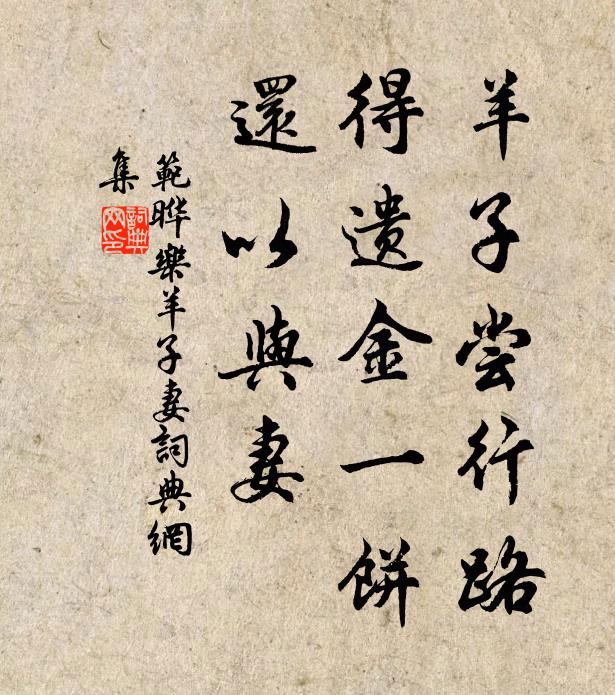 羊子尝行路
得遗金一餅
還以與妻
範晔樂羊子妻詞典網
集
詞典
网印